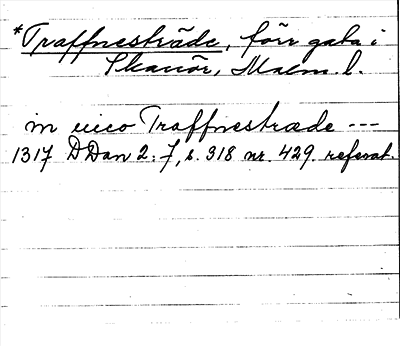 *Traffnesträde, förr gata i
Skanör, Malm. l.
in vico Traffnestræde ---
1317 DDan 2:7, s. 318 nr. 429. referat.